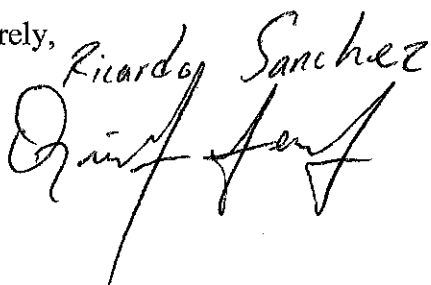 rely,
Ricardo Sanchez